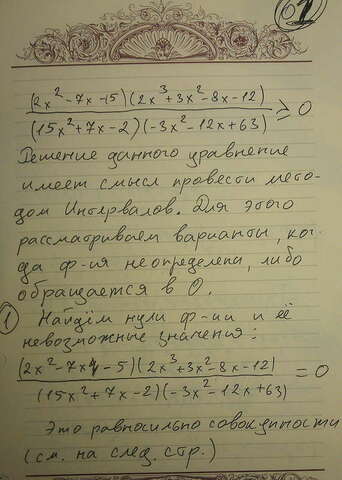 1
(2x² - 7x - 15)(2x³ + 3x² - 8x - 12)
(15x² + 7x - 2)(-3x² - 12x + 63) ≥ 0
Решение данного уравнение
имеет смысл провести мето-
дом Интервалов. Для этого
рассматриваем варианты, ког-
да ф-ия неопределена, либо
обращается в 0.
1) Найдём нули ф-ии и её
невозможные значения:
(2x² - 7x - 5)(2x³ + 3x² - 8x - 12)
(15x² + 7x - 2)(-3x² - 12x + 63) = 0
Это равносильно совокупности
(см. на след. стр.)